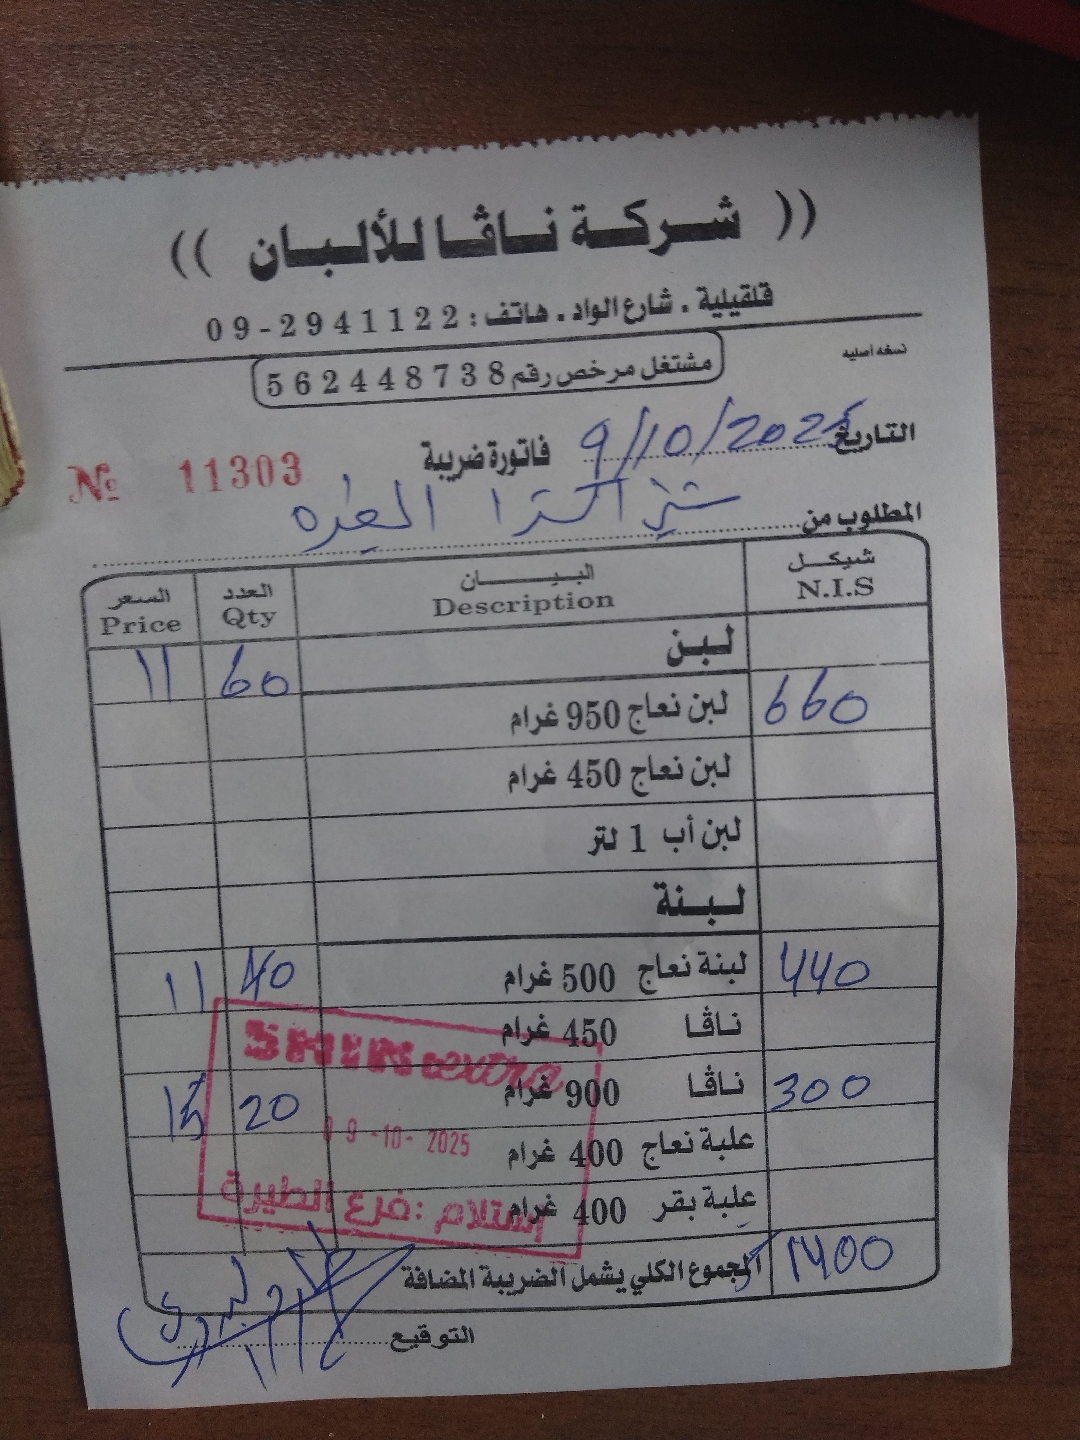 (( شركة ناڤا للألبان ))
قلقيلية . شارع الواد . هاتف : 2941122-09
مشتغل مرخص رقم 562448738
نسخه اصليه
التاريخ 9/10/2025 فاتورة ضريبة № 11303
المطلوب من شني اكسترا الطيره
شيكل البيان العدد السعر
N.I.S Description Qty Price
لبن 60 11
660 لبن نعاج 950 غرام
لبن نعاج 450 غرام
لبن أب 1 لتر
لبنة
440 لبنة نعاج 500 غرام 40 11
ناڤا 450 غرام
300 ناڤا 900 غرام 20 15
علبة نعاج 400 غرام
علبة بقر 400 غرام
SHINextra
09-10-2025
إستلام : فرع الطيرة
1400 المجموع الكلي يشمل الضريبة المضافة
التوقيع